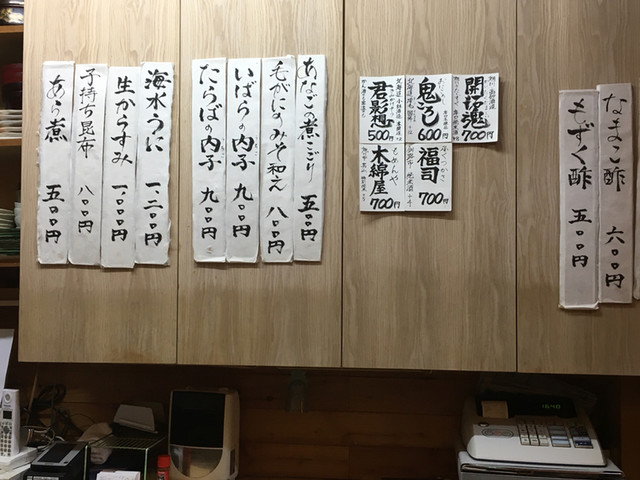 なまこ酢 六〇〇円
もずく酢 五〇〇円
開拓魂
700円
鬼ごろし
600円
君影想
500円
福司
700円
木綿屋
700円
あなごの煮こごり 五〇〇円
毛がにのみそ和え 八〇〇円
いばらの内子 九〇〇円
たらばの内子 九〇〇円
海水うに 一、二〇〇円
生からすみ 一、〇〇〇円
子持ち昆布 八〇〇円
あら煮 五〇〇円